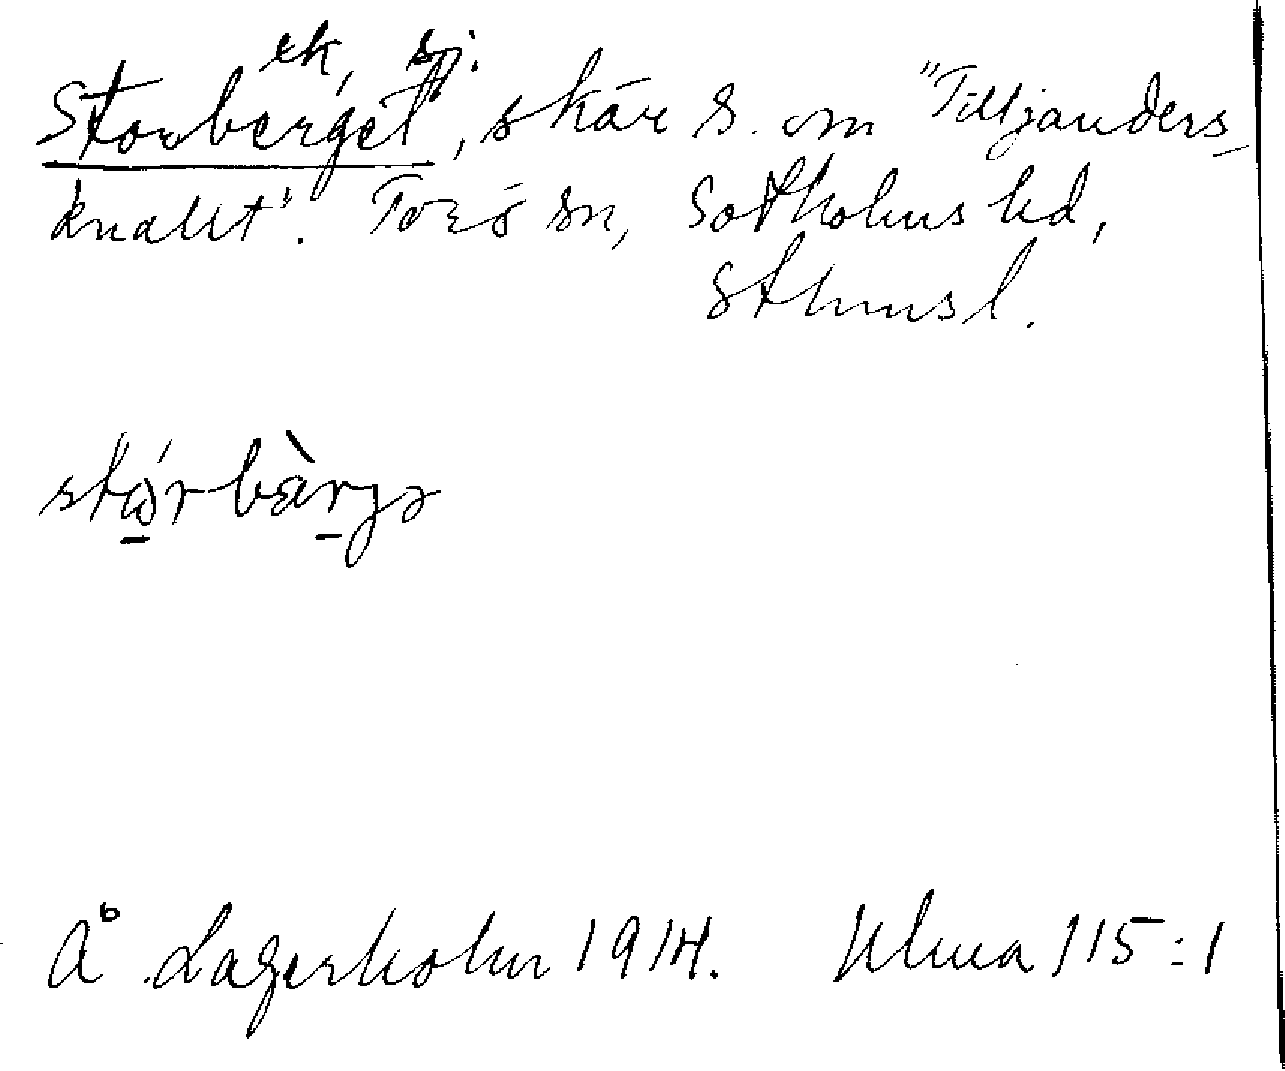 ek, sj.
Storberget, skär S. om "Tilljanders-
knallt". Torö sn, Sotholms hd,
Sthmsl.
stớrbàrjə
Å Lagerholm 1914. Ulma 115:1